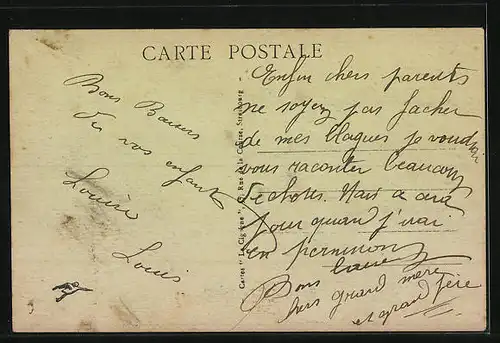 CARTE POSTALE
Bons Baisers
de vos enfants
Louise
Louis
Cartes "La Cigogne", Rue de la Course, Strasbourg
Enfin chers parents
ne soyez pas facher
de mes blagues je voudrai
vous raconter beaucoup
de choses. Mais a cera
pour quand j'irai
en permission
Bons baisers
chers grand mère
et grand père